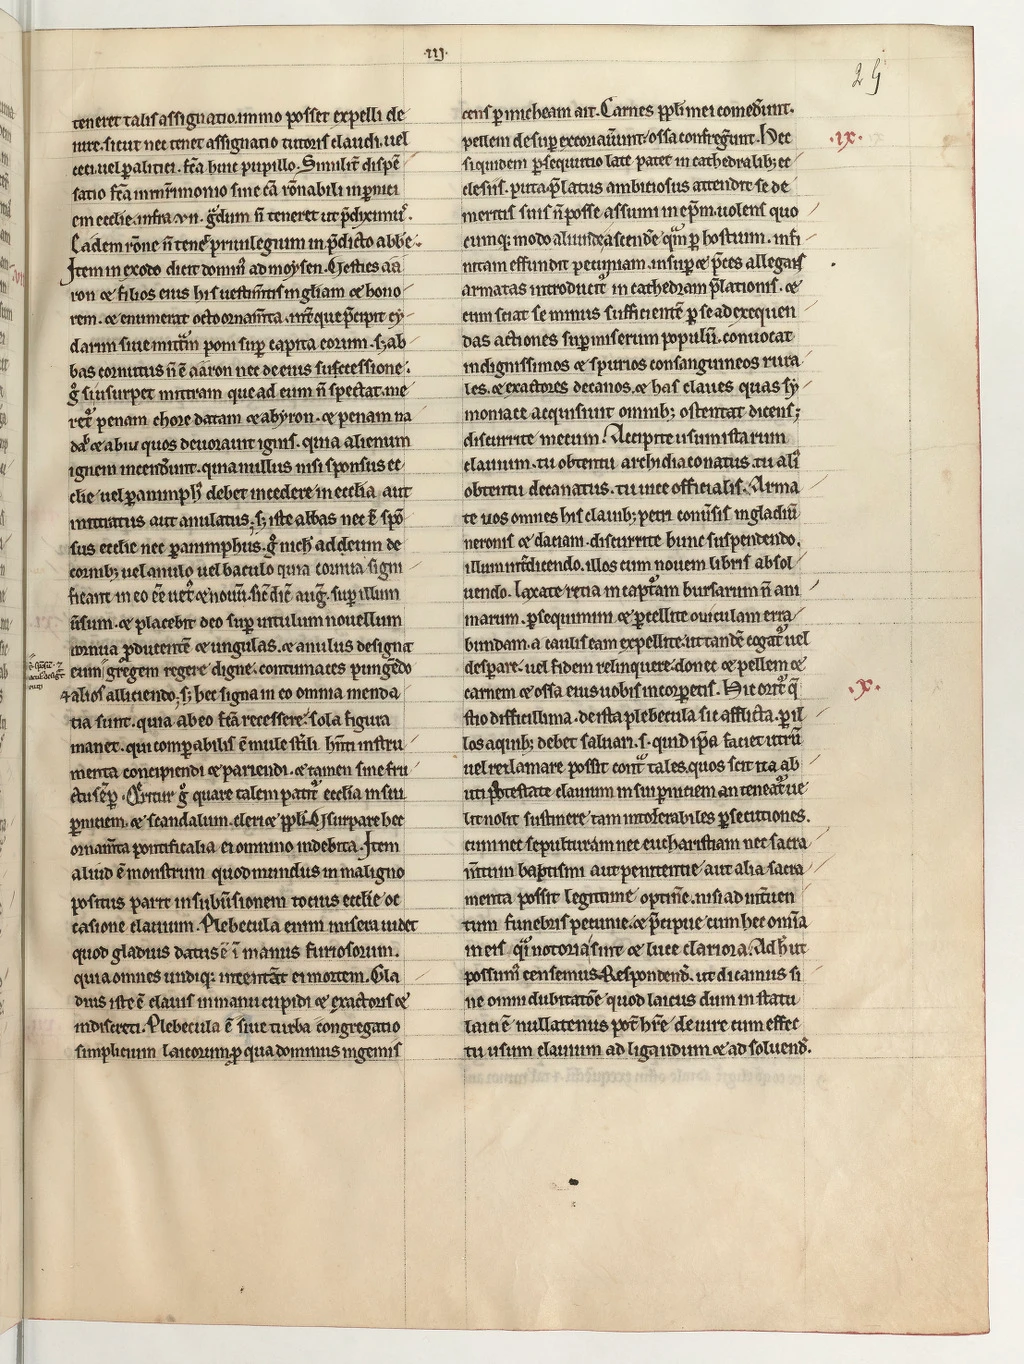 .iij.
29
teneret talis assignatio. immo posset expelli de
iure. sicut nec tenet assignatio tutoris claudi. uel
ceci. uel paliticí. fc̄a huic pupillo. Similit̄ dispē
satio fc̄a in mr̄imonio sine cā rōnabili in pniti
em ecclie. infra .xvii. gͣdum n̄ teneret ut p̄diximꝰ.
Eadem rōne n̄ teneᵗ priuilegium in p̄dicto abbe.
Item in exodo dicit dominꝰ ad moysen. Uesties aa
ron ⁊ filios eius his uestimt̄is in gl̄iam ⁊ hono
rem. ⁊ enumerat octo ornam̄ta. int̄ que p̄cipit cy
darim siue mitrā poni sup̄ capita eorum. sꝫ ab
bas cornutus n̄ ē aaron nec de eius successione.
gͦ si usurpet mitram que ad eum n̄ spectat. me
ret᷑ penam chore datam ⁊ abyron. ⁊ penam na
daᵇ ⁊ abiu quos deuorauit ignis. quia alienum
ignem incend̄unt. quia nullus nisi sponsus ec
clie uel paranimphꝰ debet incedere in ecclia aut
mitratus aut anulatus. sꝫ iste abbas nec ē spō
sus ecclie nec paranimphus. gͦ nich̄ addeum de
cornibꝫ uel anulo uel baculo quia cornua signi
ficant in eo eē uetꝰ ⁊ nouū. sic̄ dic̄ auḡ. sup̄ illum
ūsum. ⁊ placebit deo sup̄ uitulum nouellum
cornua p̄ducentē ⁊ ungulas. ⁊ anulus designat
eum gregem regere digne. contumaces pungēdo
⁊ alios alliciendo. sꝫ hec signa in eo omnia menda
tia sunt. quia ab eo fc̄a recessere. sola figura
manet. qui comparabilis ē mule st̄ili. hn̄ti instru
menta concipiendi ⁊ pariendi. ⁊ tamen sine fru
ctu sēp. Q̄ritur gͦ quare talem patit᷑ ecclia in sui
p̄niciem. ⁊ scandalum. cleri ⁊ ppl̄i. Usurpare hec
ornam̄ta pontificalia ei omnino indebita. Item
aliud ē monstrum quod mundus in maligno
positus parit in subūsionem tocius ecclie oc
casione clauium. Plebecula enim misera uidet
quod gladius datus ē ī manus furiosorum.
quia omnes undiqꝫ intentāt ei mortem. Gla
dius iste ē clauis in manu cupidi ⁊ exactoris ⁊
indiscreti. Plebecula ē siue turba congregatio
simplicium laicorum. p qua dominus ingemis
cens p micheam ait. Carnes ppl̄i mei comed̄unt.
pellem desup̄ excoriaūunt. ossa confreḡunt. Hec
.ix.
siquidem psequutio late patet in cathedralibꝫ ec
clesiis. puta p̄latus ambitiosus attendit se de
meritis suis n̄ posse assumi in ep̄m. uolens quo
cumqꝫ modo aliunde ascendē qͣm p hostium. infi
nitam effundit pecuniam. insup̄ ⁊ p̄ces allegans
armatas introducit᷑ in cathedram p̄lationis. ⁊
cum sciat se minus sufficientē p se ad exequen
das actiones sup̄ miserum populū. conuocat
indignissimos ⁊ spurios consanguineos rura
les. ⁊ exactores decanos. ⁊ has claues quas sy
moniace acquisiuit omnibꝫ ostentat dicens;
discurrite mecum. Accipite usum istarum
clauium. tu obtentu archidiaconatus. tu aliꝰ
obtentu decanatus. tu uice officialis. Arma
te uos omnes his clauibꝫ petri conūsis in gladiū
neronis ⁊ daciani. discurrite hunc suspendendo.
illum int̄dicendo. illos cum nouem libris absol
uendo. laxate retia in captͣm bursarum n̄ ani
marum. psequimini ⁊ pcellite ouiculam erra
bundam. a caulis eam expellite. ut tandē cogat᷑ uel
desperare. uel fidem relinquere. donec ⁊ pellem ⁊
carnem ⁊ ossa eius uobis incorpetis. Hic orit᷑ q̄
.x.
stio difficillima. de ista plebecula sic afflicta. p il
los a quibꝫ debet saluari. s. quid ip̄a faciet utrū
uel reclamare possit contͣ tales. quos scit ita ab
uti potestate clauium in sui p̄niciem an teneat᷑ ue
lit nolit sustinere tam intolerabiles psecutiones.
cum nec sepulturam nec eucharistiam nec sacra
m̄tum baptismi aut penitentie aut alia sacra
menta possit legittime optin̄e. nisi ad int̄uen
tum funebris pecunie. ⁊ p̄cipue cum hec omīa
in eis qͣsi notoria sint ⁊ luce clariora. Ad h̄ ut
possumꝰ censemus. Respondendꝰ. ut dicamus si
ne omni dubitatōe quod laicus dum in statu
laici ē nullatenus pot̄ hr̄e de iure cum effec
tu usum clauium ad ligandum ⁊ ad soluendꝰ.